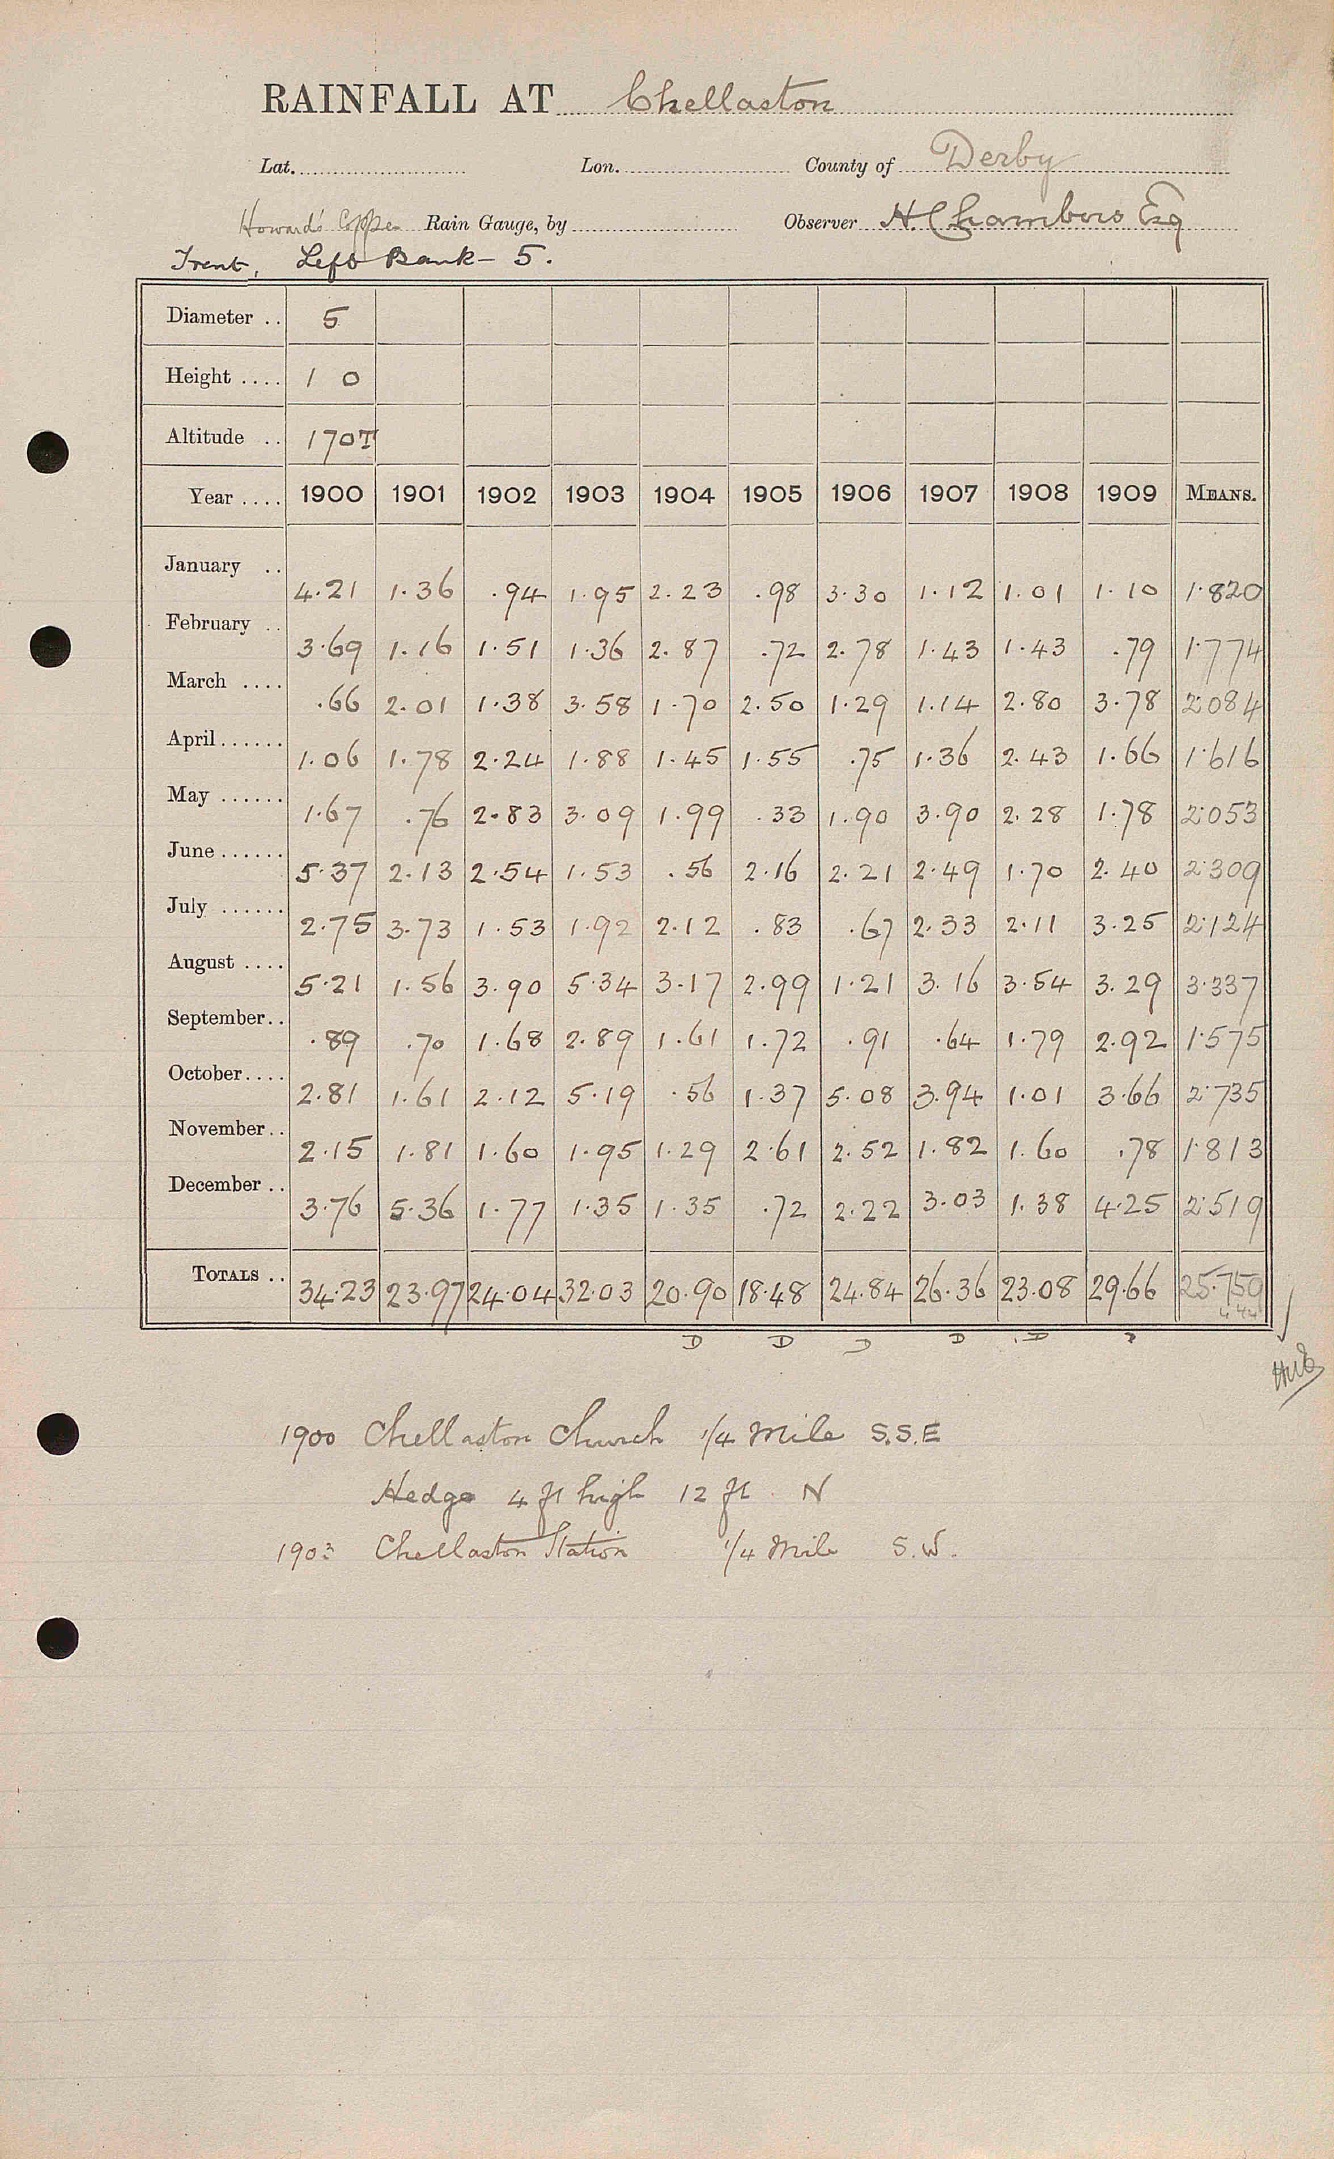 RAINFALL AT Chellaston
Lat. Lon. County of Derby
Howard's Copper Rain Gauge, by Observer H. Chambers Esq
Trent, Left Bank - 5.
Diameter .. 5
Height .... 1 0
Altitude .. 170T
Year .... 1900 1901 1902 1903 1904 1905 1906 1907 1908 1909 MEANS.
January .. 4.21 1.36 .94 1.95 2.23 .98 3.30 1.12 1.01 1.10 1.820
February .. 3.69 1.16 1.51 1.36 2.87 .72 2.78 1.43 1.43 .79 1.774
March .... .66 2.01 1.38 3.58 1.70 2.50 1.29 1.14 2.80 3.78 2.084
April...... 1.06 1.78 2.24 1.88 1.45 1.55 .75 1.36 2.43 1.66 1.616
May ...... 1.67 .76 2.83 3.09 1.99 .33 1.90 3.90 2.28 1.78 2.053
June...... 5.37 2.13 2.54 1.53 .56 2.16 2.21 2.49 1.70 2.40 2.309
July ...... 2.75 3.73 1.53 1.92 2.12 .83 .67 2.33 2.11 3.25 2.124
August .... 5.21 1.56 3.90 5.34 3.17 2.99 1.21 3.16 3.54 3.29 3.337
September.. .89 .70 1.68 2.89 1.61 1.72 .91 .64 1.79 2.92 1.575
October.... 2.81 1.61 2.12 5.19 .56 1.37 5.08 3.94 1.01 3.66 2.735
November.. 2.15 1.81 1.60 1.95 1.29 2.61 2.52 1.82 1.60 .78 1.813
December.. 3.76 5.36 1.77 1.35 1.35 .72 2.22 3.03 1.38 4.25 2.519
TOTALS .. 34.23 23.97 24.04 32.03 20.90 18.48 24.84 26.36 23.08 29.66 25.750
D D D D D
1900 Chellaston Church 1/4 Mile S.S.E
Hedge 4 ft high 12 ft N
1903 Chellaston Station 1/4 Mile S.W.